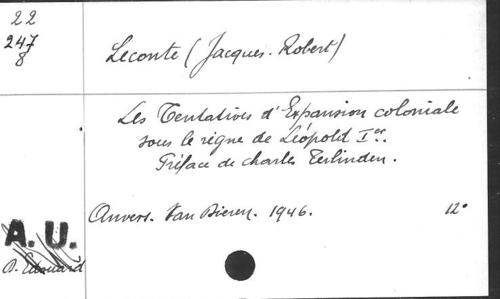 22
247
8
Leconte (Jacques-Robert)
Les Tentatives d'Expansion coloniale
sous le règne de Léopold Ier.
Préface de Charles Terlinden.
Anvers. Van Dieren. 1946. 12°
A. U.
D. Edouard